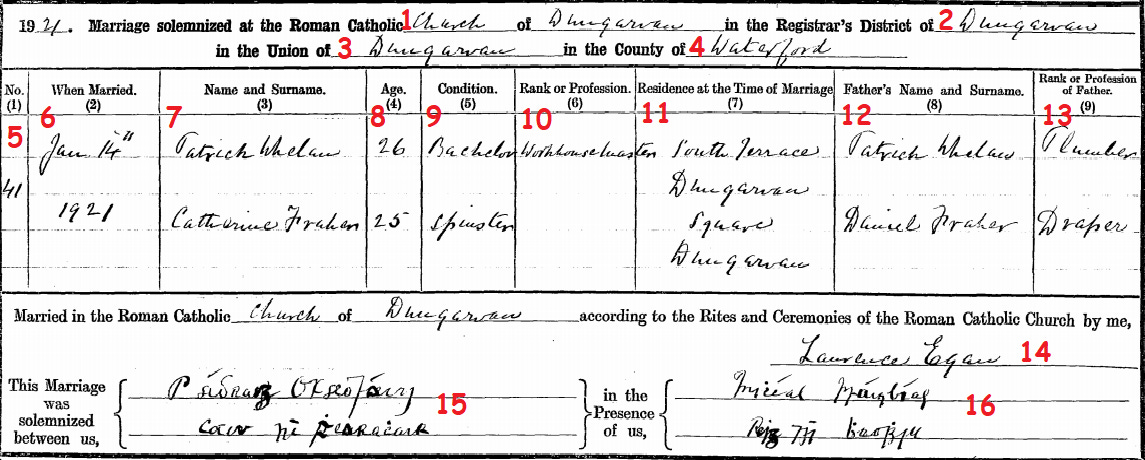 1921. Marriage solemnized at the Roman Catholic 1 Church of Dungarvan in the Registrar's District of 2 Dungarvan
in the Union of 3 Dungarvan in the County of 4 Waterford
No. (1) When Married. (2) Name and Surname. (3) Age. (4) Condition. (5) Rank or Profession. (6) Residence at the Time of Marriage (7) Father's Name and Surname. (8) Rank or Profession of Father. (9)
5 6 7 8 9 10 11 12 13
Jan 14" Patrick Whelan 26 Bachelor Workhouse Master South Terrace Patrick Whelan Plumber
41 Dungarvan
1921 Catherine Fraher 25 Spinster Square Daniel Fraher Draper
Dungarvan
Married in the Roman Catholic Church of Dungarvan according to the Rites and Ceremonies of the Roman Catholic Church by me,
Laurence Egan 14
This Marriage was solemnized between us, 15
in the Presence of us, 16